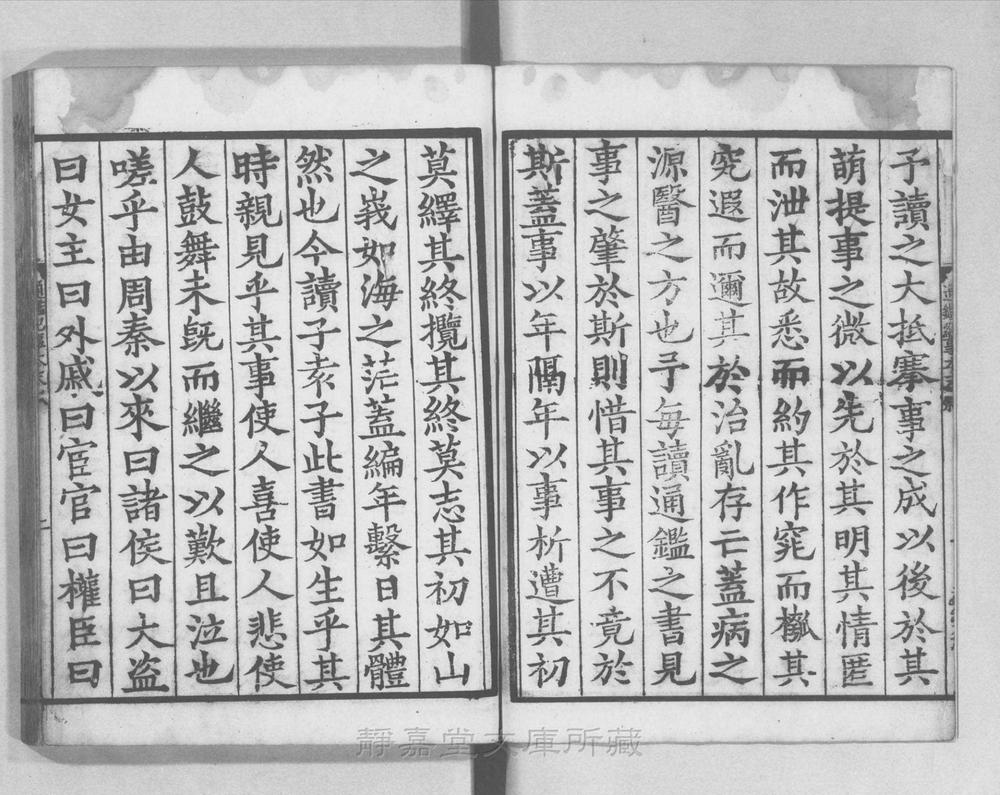 子讀之大抵搴事之成以後於其
萌提事之微以先於其明其情匿
而泄其故悉而約其作窕而槬其
究遐而邇其於治亂存亡蓋病之
源醫之方也予每讀通鑑之書見
事之肇於斯則惜其事之不竟於
斯蓋事以年隔年以事析遭其初
莫繹其終攬其終莫志其初如山
之峩如海之茫蓋編年繫日其體
然也今讀子袁子此書如生乎其
時親見乎其事使人喜使人悲使
人鼓舞未既而繼之以歎且泣也
嗟乎由周秦以來曰諸侯曰大盜
曰女主曰外戚曰宦官曰權臣曰
靜嘉堂文庫所藏